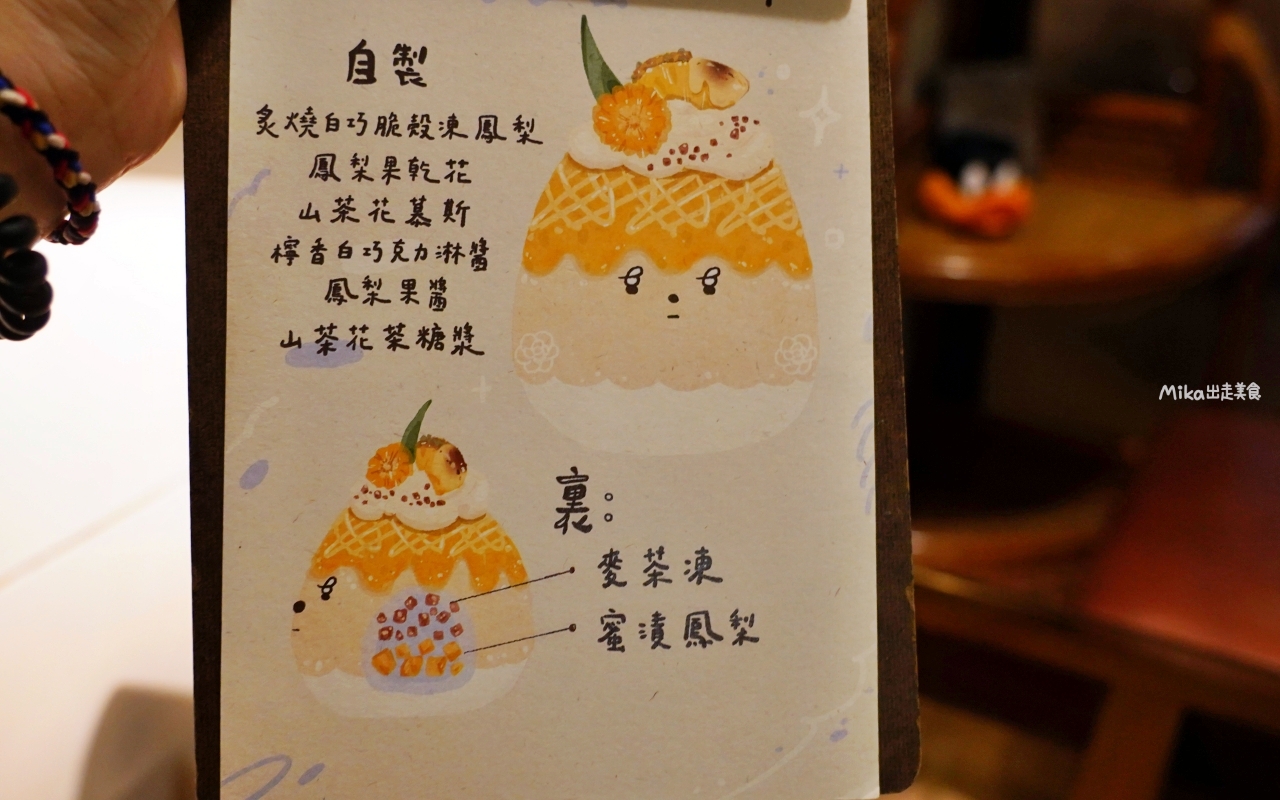 自製
炙燒白巧脆殼凍鳳梨
鳳梨果乾花
山茶花慕斯
檸香白巧克力淋醬
鳳梨果醬
山茶花茶糖漿
裏：
麥茶凍
蜜漬鳳梨
Mika出走美食